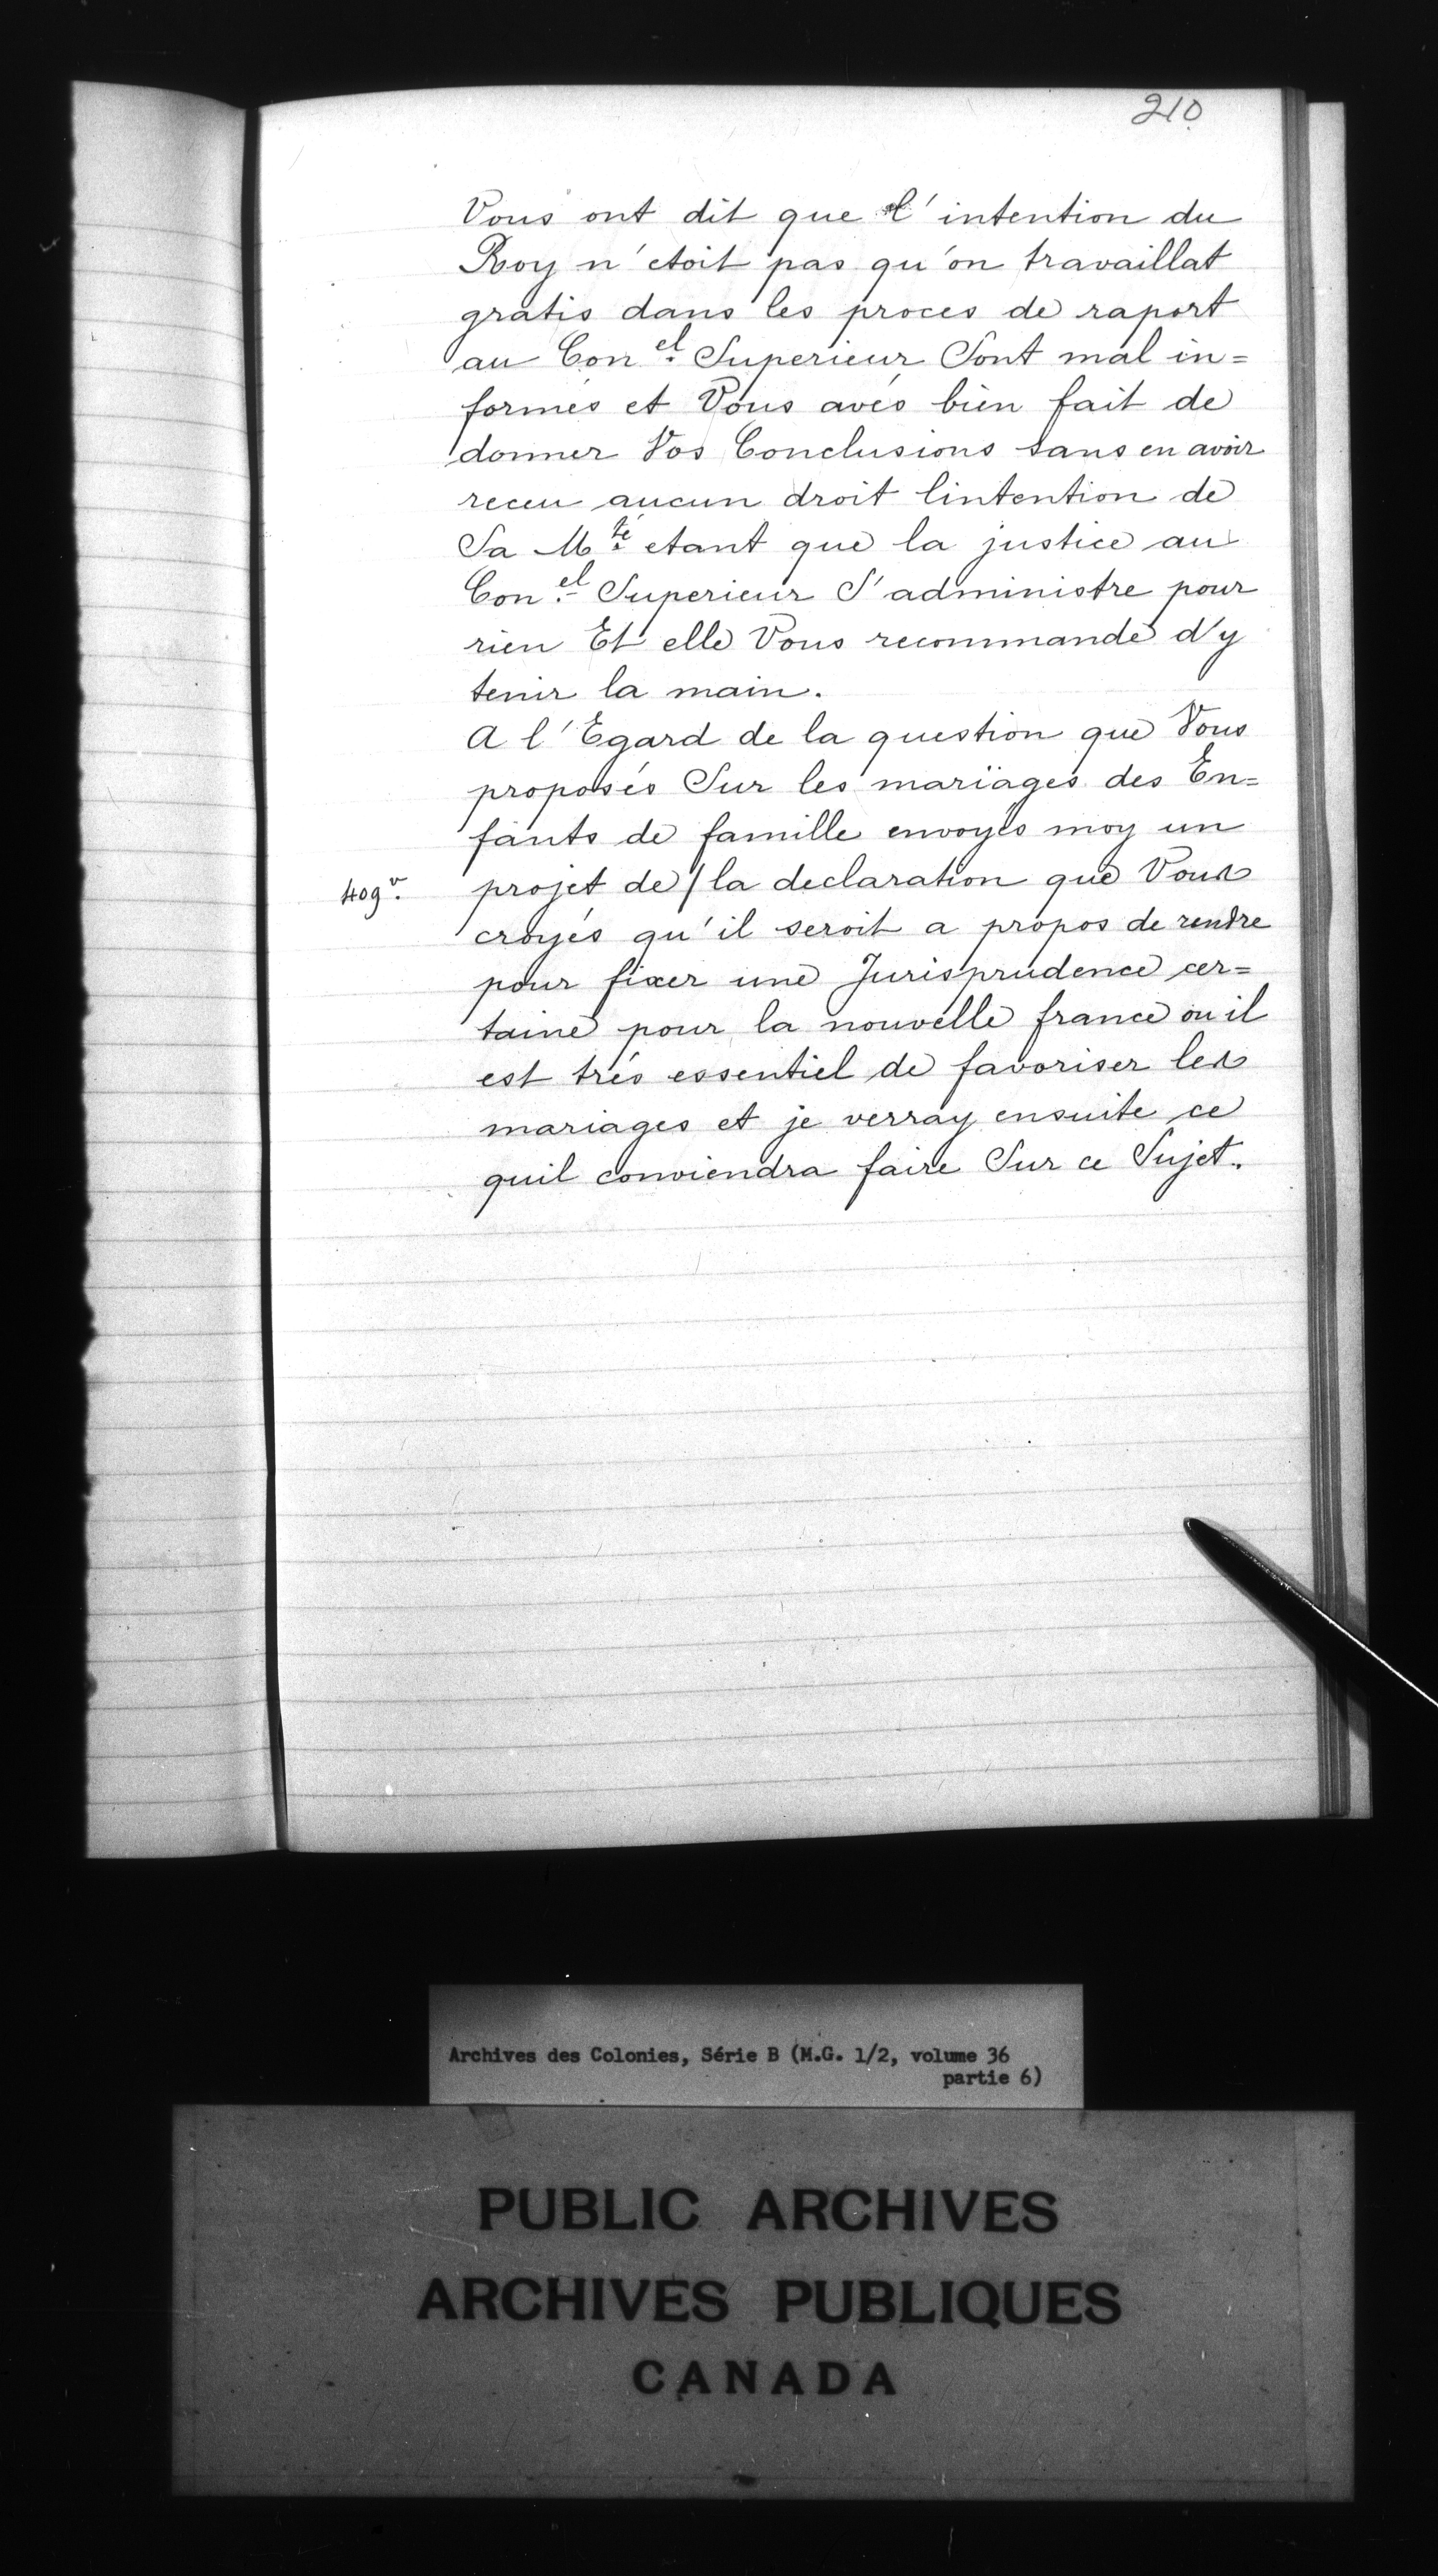 210
Vous ont dit que l'intention du
Roy n'etoit pas qu'on travaillat
gratis dans les proces de raport
au Con.el Superieur Sont mal in=
formés et Vous avés bien fait de
donner Vos Conclusions sans en avoir
receu aucun droit lintention de
Sa M.té etant que la justice au
Con.el Superieur S'administre pour
rien Et elle Vous recommande d'y
tenir la main.
A l'Egard de la question que Vous
proposés Sur les mariäges des En=
fants de famille envoyés moy un
409 v. projet de / la declaration que Vous
croyés qu'il seroit a propos de rendre
pour fixer une Jurisprudence cer=
taine pour la nouvelle france ou il
est trés essentiel de favoriser les
mariages et je verray ensuite ce
quil conviendra faire Sur ce Sujet.
Archives des Colonies, Série B (M.G. 1/2, volume 36
partie 6)
PUBLIC ARCHIVES
ARCHIVES PUBLIQUES
CANADA